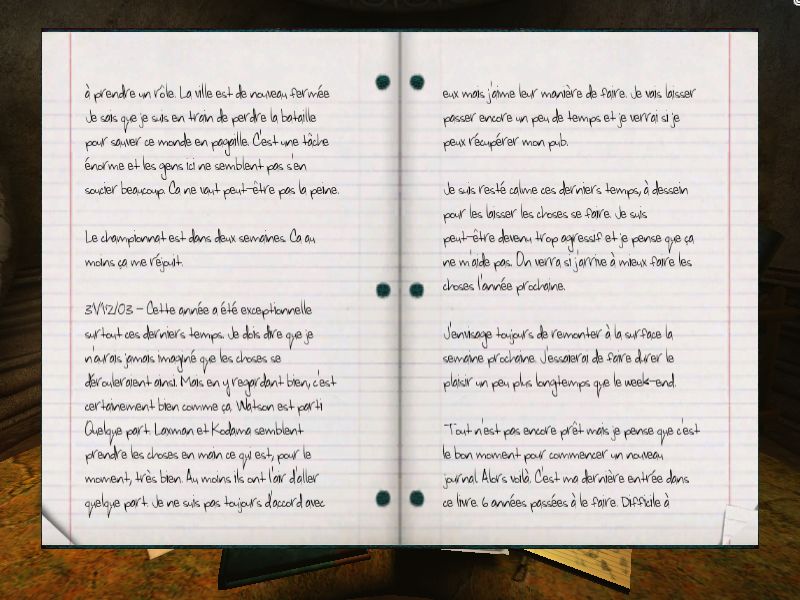 à prendre un rôle. La ville est de nouveau fermée
Je sais que je suis en train de perdre la bataille
pour sauver ce monde en pagaille. C'est une tâche
énorme et les gens ici ne semblent pas s'en
soucier beaucoup. Ca ne vaut peut-être pas la peine.
Le championnat est dans deux semaines. Ca au
moins ça me réjouit.
31/12/03 - Cette année a été exceptionnelle
surtout ces derniers temps. Je dois dire que je
n'aurais jamais imaginé que les choses se
dérouleraient ainsi. Mais en y regardant bien, c'est
certainement bien comme ça. Watson est parti
Quelque part. Laxman et Kodama semblent
prendre les choses en main ce qui est, pour le
moment, très bien. Au moins ils ont l'air d'aller
quelque part. Je ne suis pas toujours d'accord avec
eux mais j'aime leur manière de faire. Je vais laisser
passer encore un peu de temps et je verrai si je
peux récupérer mon pub.
Je suis resté calme ces derniers temps, à dessein
pour les laisser les choses se faire. Je suis
peut-être devenu trop agressif et je pense que ça
ne m'aide pas. On verra si j'arrive à mieux faire les
choses l'année prochaine.
J'envisage toujours de remonter à la surface la
semaine prochaine. J'essaierai de faire durer le
plaisir un peu plus longtemps que le week-end.
Tout n'est pas encore prêt mais je pense que c'est
le bon moment pour commencer un nouveau
journal. Alors voilà. C'est ma dernière entrée dans
ce livre. 6 années passées à le faire. Difficile à